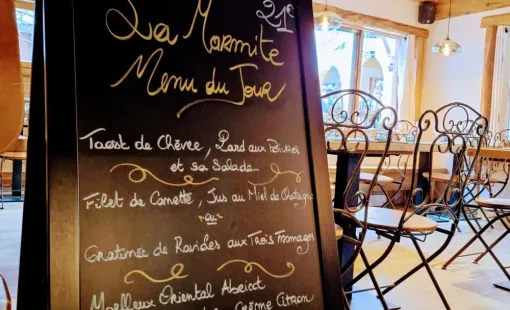 La Marmite
21€
Menu du Jour
Toast de Chèvre, Lard aux Poivres
et sa Salade
Filet de Canette, Jus au Miel de Chataigne
ou
Gratinée de Ravioles aux Trois Fromages
Moelleux Oriental Abricot
Crème Citron